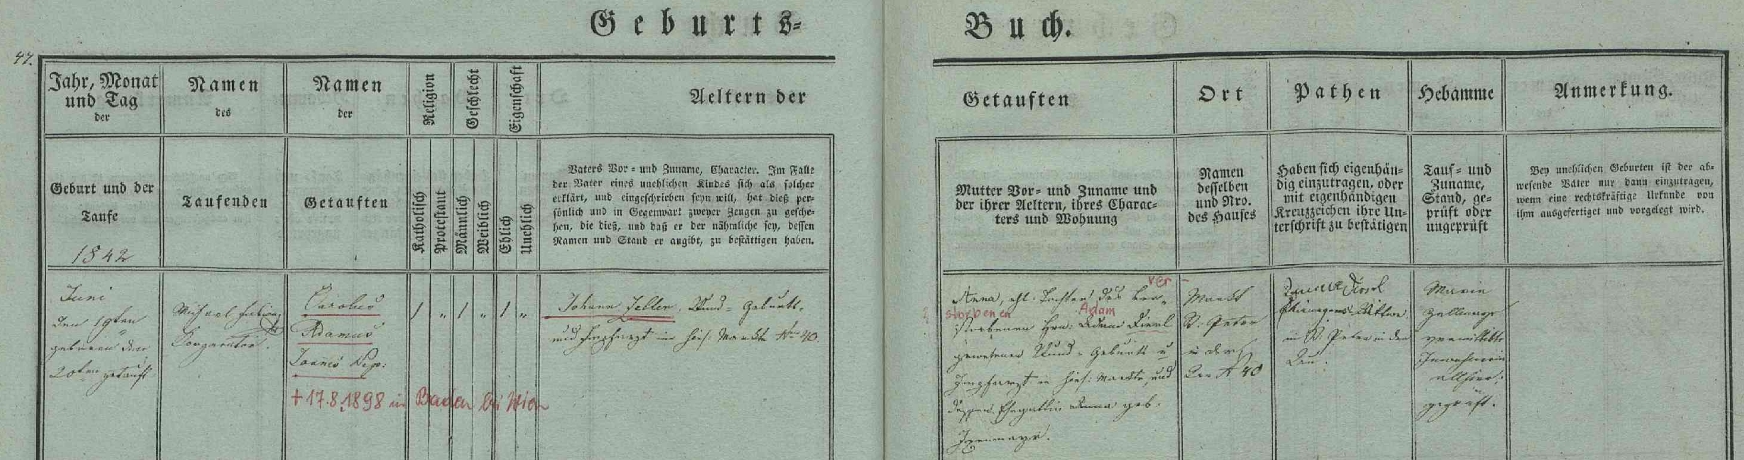 Geburts-
Buch.
47.
Jahr, Monat
und Tag
der
Geburt und der
Taufe
1842
Namen
des
Taufenden
Namen
der
Getauften
Religion
Katholisch
Protestant
Geschlecht
Männlich
Weiblich
Eigenschaft
Ehlich
Unehlich
Aeltern der
Vaters Vor- und Zuname, Character. Im Falle
der Vater eines unehlichen Kindes sich als solcher
erklärt, und eingeschrieben seyn will, hat dieß per-
sönlich und in Gegenwart zweyer Zeugen zu gesche-
hen, die dieß, und daß er der nähmliche sey, dessen
Namen und Stand er angibt, zu bestättigen haben.
Getauften
Mutter Vor- und Zuname und
der ihrer Aeltern, ihres Charac-
ters und Wohnung
Ort
Namen
desselben
und Nro.
des Hauses
Pathen
Haben sich eigenhän-
dig einzutragen, oder
mit eigenhändigen
Kreuzzeichen ihre Un-
terschrift zu bestätigen
Hebamme
Tauf- und
Zuname,
Stand, ge-
prüft oder
ungeprüft
Anmerkung.
Bey unehlichen Geburten ist der ab-
wesende Vater nur dann einzutragen,
wenn eine rechtskräftige Urkunde von
ihm ausgefertiget und vorgelegt wird.
Juni
den 19ten
geboren den
20ten getauft
Michael
Cooperator.
Carolus
Adamus
Joannes Nep:
+ 17.8.1898 in Baden bei Wien
1 " 1 " 1 "
Johann Zeller, Wund- Geburts-
und Impfarzt in hies: Markte N 40
ver
Anna, ehl. Tochter des ver-
storbenen Adam
storbenen Hrn: Adam Dierl
gewesener Wund- Geburts u
Impfarzt in hies: Markte, und
dessen Ehegattin Anna geb.
Markt
St: Peter
in der
Au N 40
in St. Peter in der
Au.
Maria
geprüft.